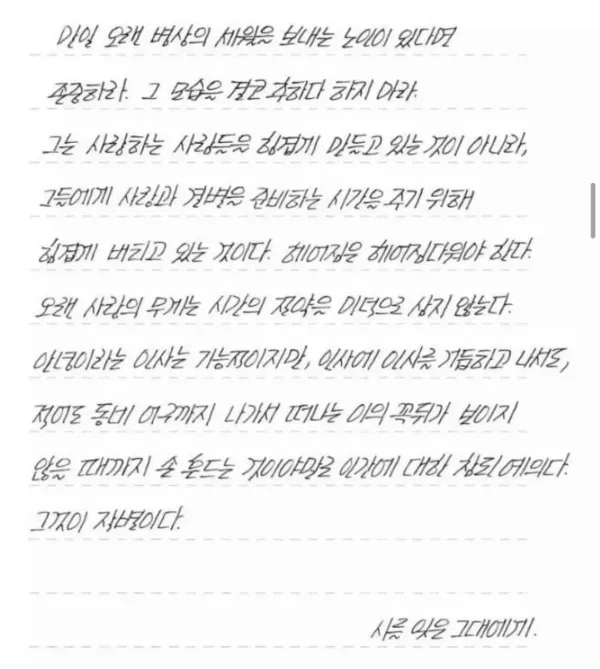 만일 오래 병상의 세월을 보내는 노인이 있다면
존중하라. 그 모습을 결코 추하다 하지 마라.
그는 사랑하는 사람들을 힘겹게 만들고 있는 것이 아니라,
그들에게 사랑과 결별을 준비하는 시간을 주기 위해
힘겹게 버티고 있는 것이다. 헤어짐은 헤어짐다워야 한다.
오랜 사랑의 무게는 시간의 절약을 미덕으로 삼지 않는다.
안녕이라는 인사는 기능적이지만, 인사에 인사를 거듭하고 나서도,
적어도 동네 어귀까지 나가서 떠나는 이의 꼭뒤가 보이지
않을 때까지 손 흔드는 것이야말로 인간에 대한 참된 예의다.
그것이 작별이다.
시를 잊은 그대에게.